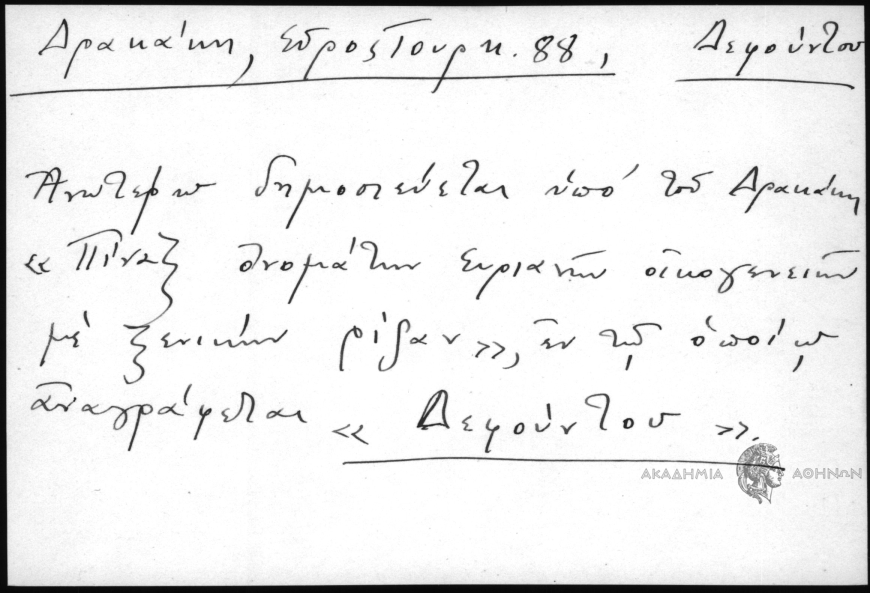 Δρακάκη, Σῦρος Τουρκ. 88, Δεφούντου
Ἀνωτέρω δημοσιεύεται ὑπό τοῦ Δρακάκη
«Πίναξ ὀνομάτων Συριανῶν οἰκογενειῶν
μέ ξενικήν ρίζαν», ἐν τῷ ὁποίῳ
ἀναγράφεται «Δεφούντου».
ΑΚΑΔΗΜΙΑ ΑΘΗΝΩΝ